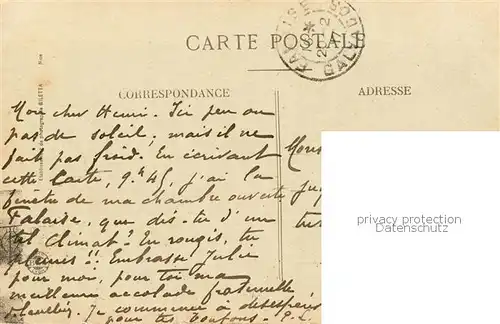 CARTE POSTALE
CORRESPONDANCE
ADRESSE
Mon cher Henri. Ici peu ou
pas de soleil, mais il ne
fait pas froid. En écrivant
cette Carte, 9h45, j'ai la
fenêtre de ma chambre ouverte
Falaise, que dis-tu d'un
tel Climat? En rougis, tu
!! Embrasse Julie
pour moi, pour toi ma
meilleure accolade fraternelle
Je commence à désespérer
pour tes P.L.
privacy protection
Datenschutz